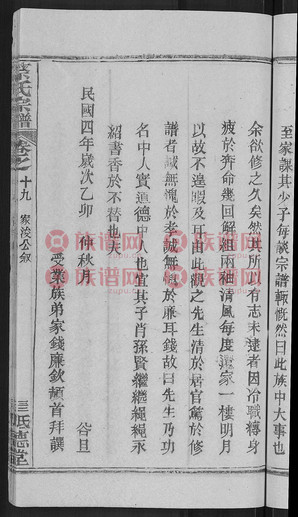 至家課其少子每談宗譜輒慨然曰此族中大事也
余欲修之久矣然其所以有志未逮者因冷職縛身
疲於奔命幾回解組兩袖清風每度還家一樓明月
以故不遑暇及于由此觀之先生清於居官篤於修
譜者誠無愧於李城無愧於雁耳錢故曰先生乃功
名中人實道德中人也宜其子肖孫賢繼繼繩繩永
紹書香於不替也
民國四年歲次乙卯 仲秋月 谷旦
受業族弟家錢廉欽頓首拜譔
氏宗譜
卷之十九 家浚公敘
氏德堂
族谱网